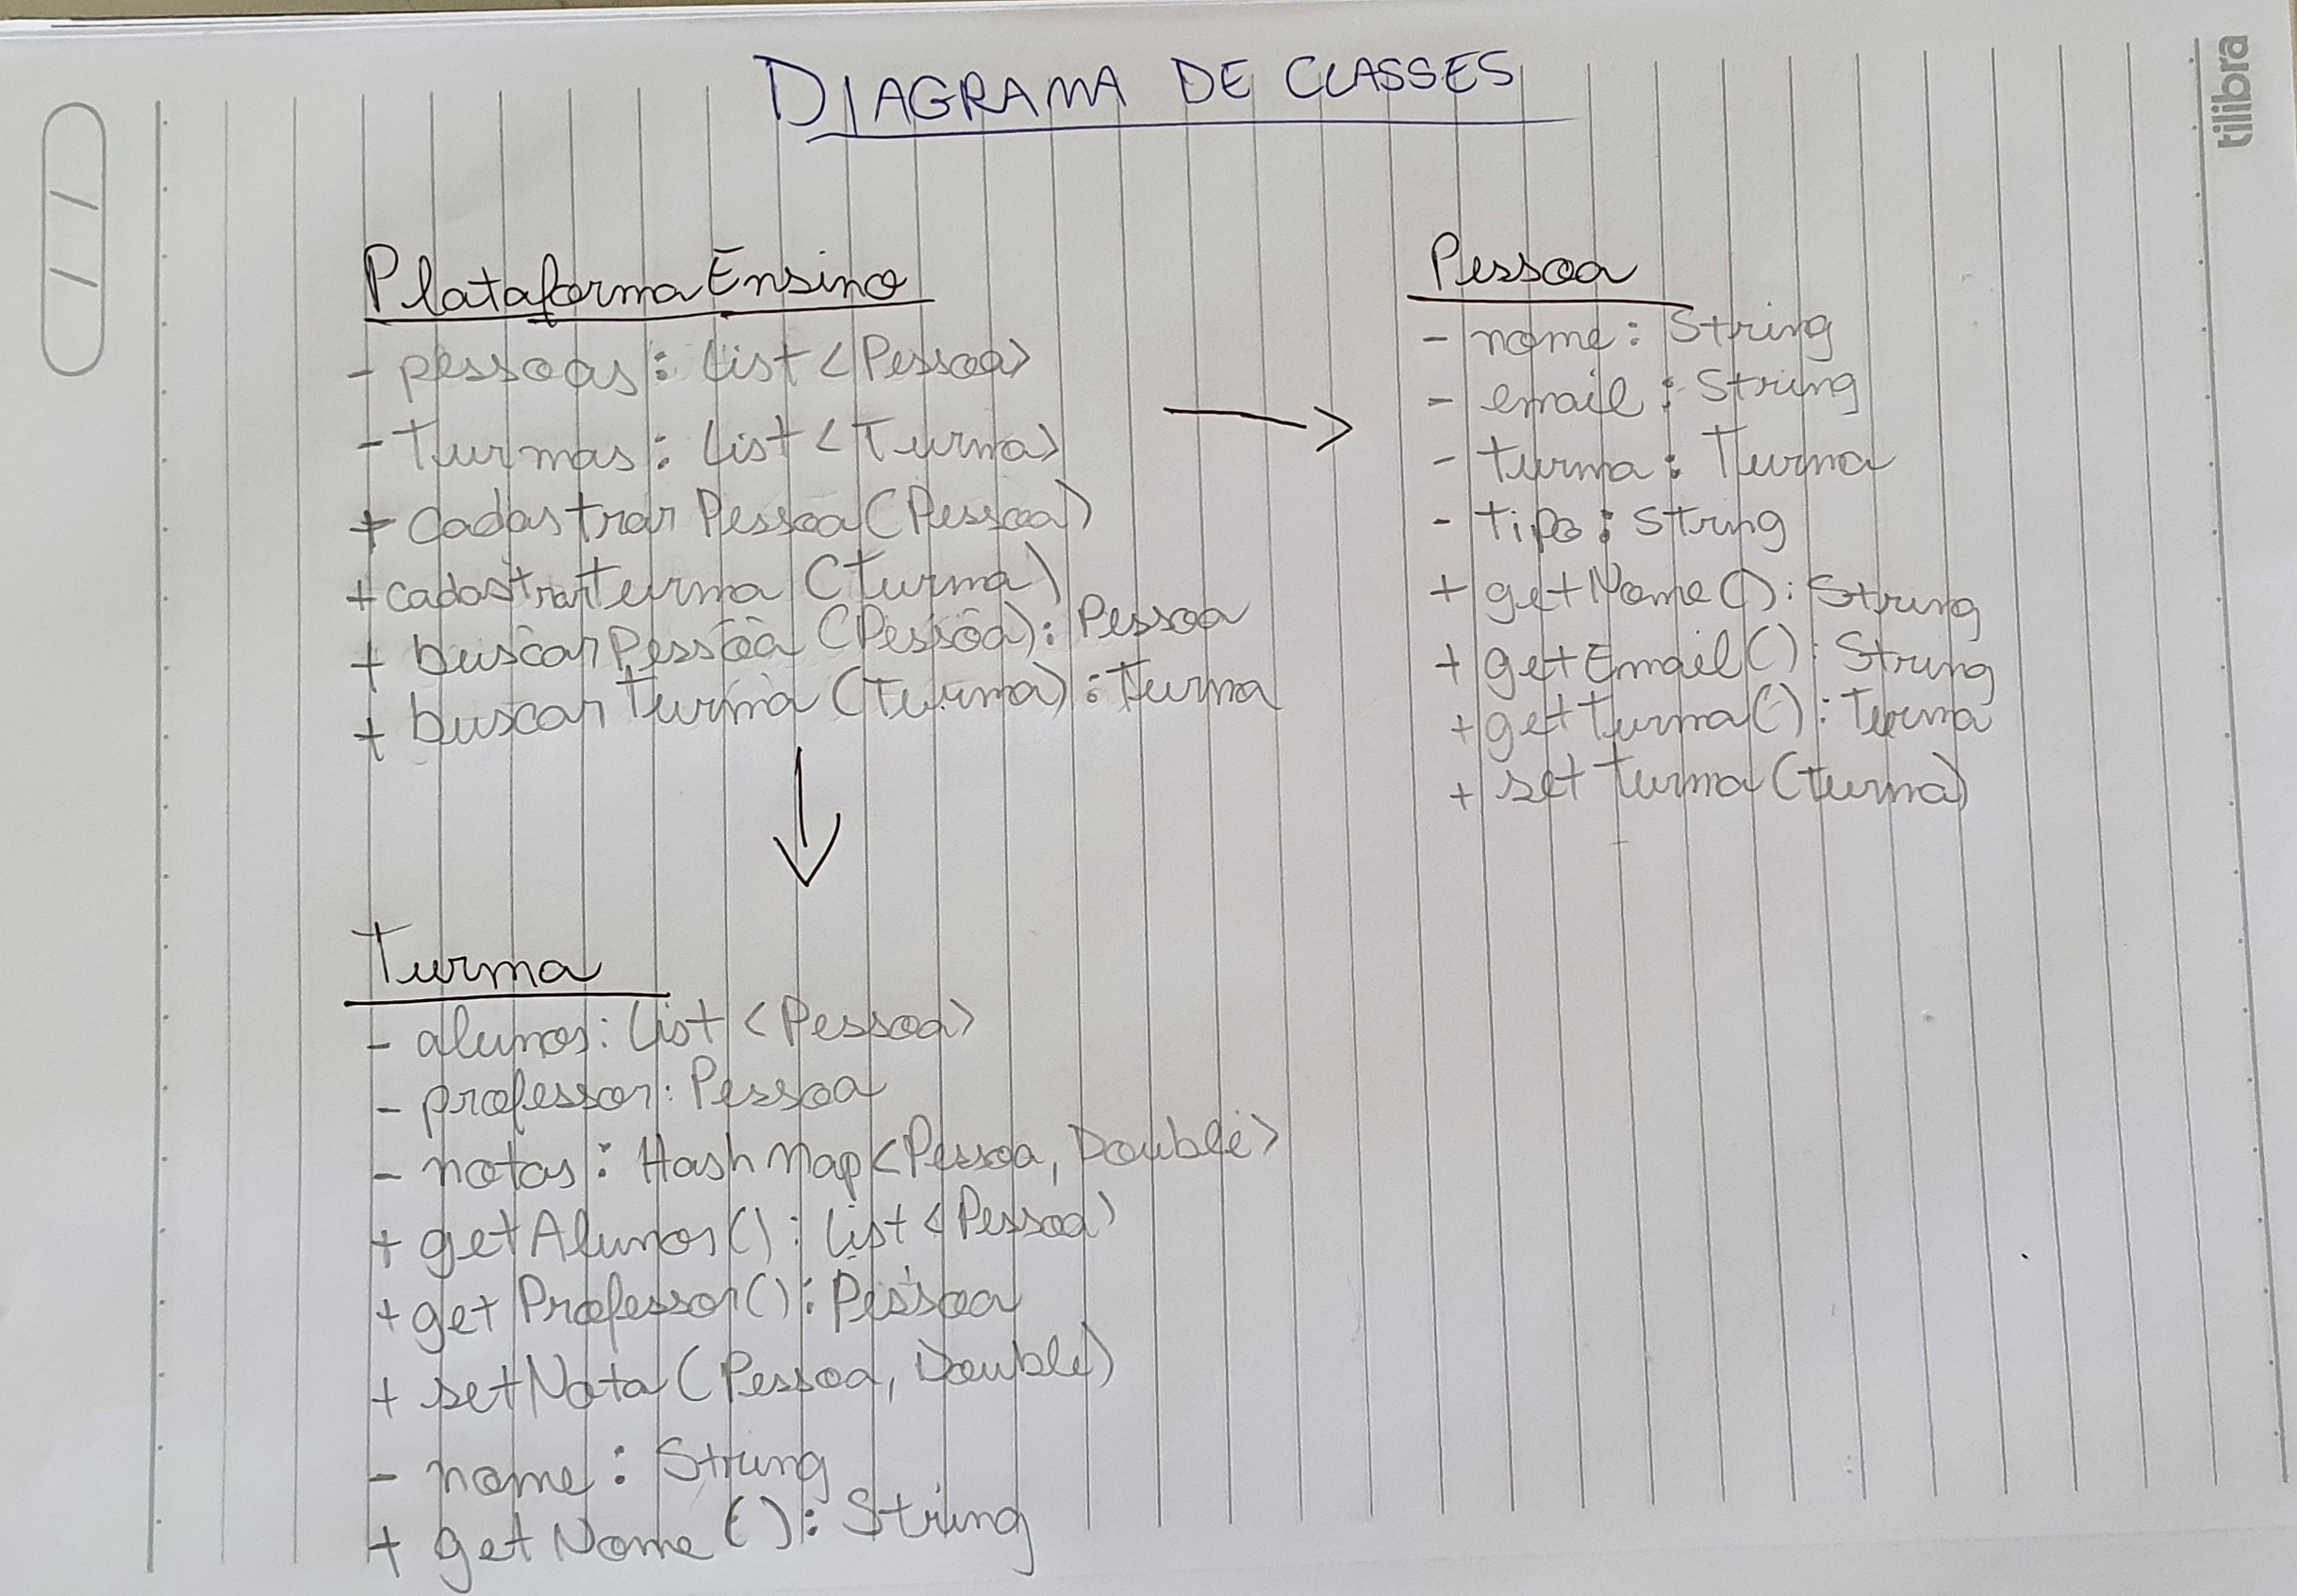 DIAGRAMA DE CLASSES
tilibra
PlataformaEnsino
- pessoas: List <Pessoa>
- Turmas: List <Turma>
+ cadastrar Pessoa (Pessoa)
+ cadastrarTurma (turma)
+ buscarPessoa (Pessoa): Pessoa
+ buscar Turma (Turma): Turma
Pessoa
- nome: String
- email: String
- turma: Turma
- tipo: String
+ getNome(): String
+ getEmail(): String
+ getTurma(): Turma
+ set Turma (turma)
Turma
- alunos: List <Pessoa>
- professor: Pessoa
- notas: Hash Map<Pessoa, Double>
+ getAlunos(): List <Pessoa>
+ get Professor(): Pessoa
+ setNota (Pessoa, Double)
- nome: String
+ getNome (): String